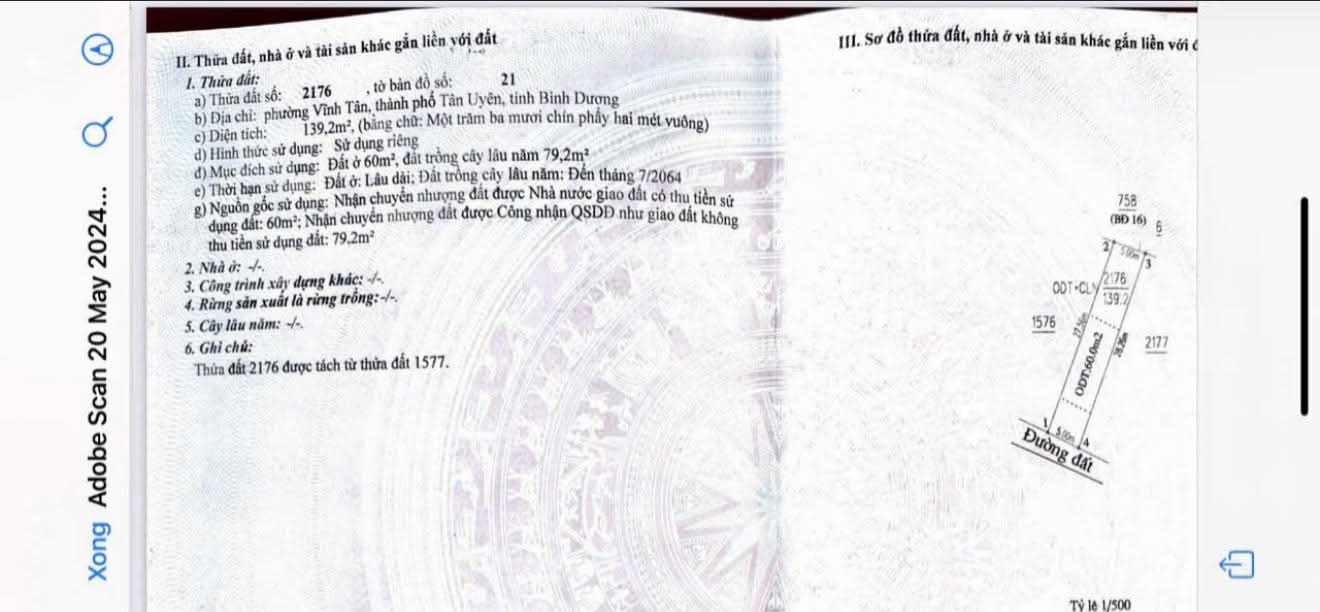 Xong Adobe Scan 20 May 2024...
II. Thửa đất, nhà ở và tài sản khác gắn liền với đất
1. Thửa đất:
a) Thửa đất số: 2176 , tờ bản đồ số: 21
b) Địa chỉ: phường Vĩnh Tân, thành phố Tân Uyên, tỉnh Bình Dương
c) Diện tích: 139,2m², (bằng chữ: Một trăm ba mươi chín phẩy hai mét vuông)
d) Hình thức sử dụng: Sử dụng riêng
đ) Mục đích sử dụng: Đất ở 60m², đất trồng cây lâu năm 79,2m²
e) Thời hạn sử dụng: Đất ở: Lâu dài; Đất trồng cây lâu năm: Đến tháng 7/2064
g) Nguồn gốc sử dụng: Nhận chuyển nhượng đất được Nhà nước giao đất có thu tiền sử
dụng đất: 60m²; Nhận chuyển nhượng đất được Công nhận QSDĐ như giao đất không
thu tiền sử dụng đất: 79,2m²
2. Nhà ở: -/-.
3. Công trình xây dựng khác: -/-.
4. Rừng sản xuất là rừng trồng: -/-.
5. Cây lâu năm: -/-.
6. Ghi chú:
Thửa đất 2176 được tách từ thửa đất 1577.
III. Sơ đồ thửa đất, nhà ở và tài sản khác gắn liền với
758
(BĐ 16)
6
2
5.00m
3
ODT+CLN
2176
139.2
1576
2177
ODT:60.0m2
1
5.00m
4
Đường đất
Tỷ lệ 1/500